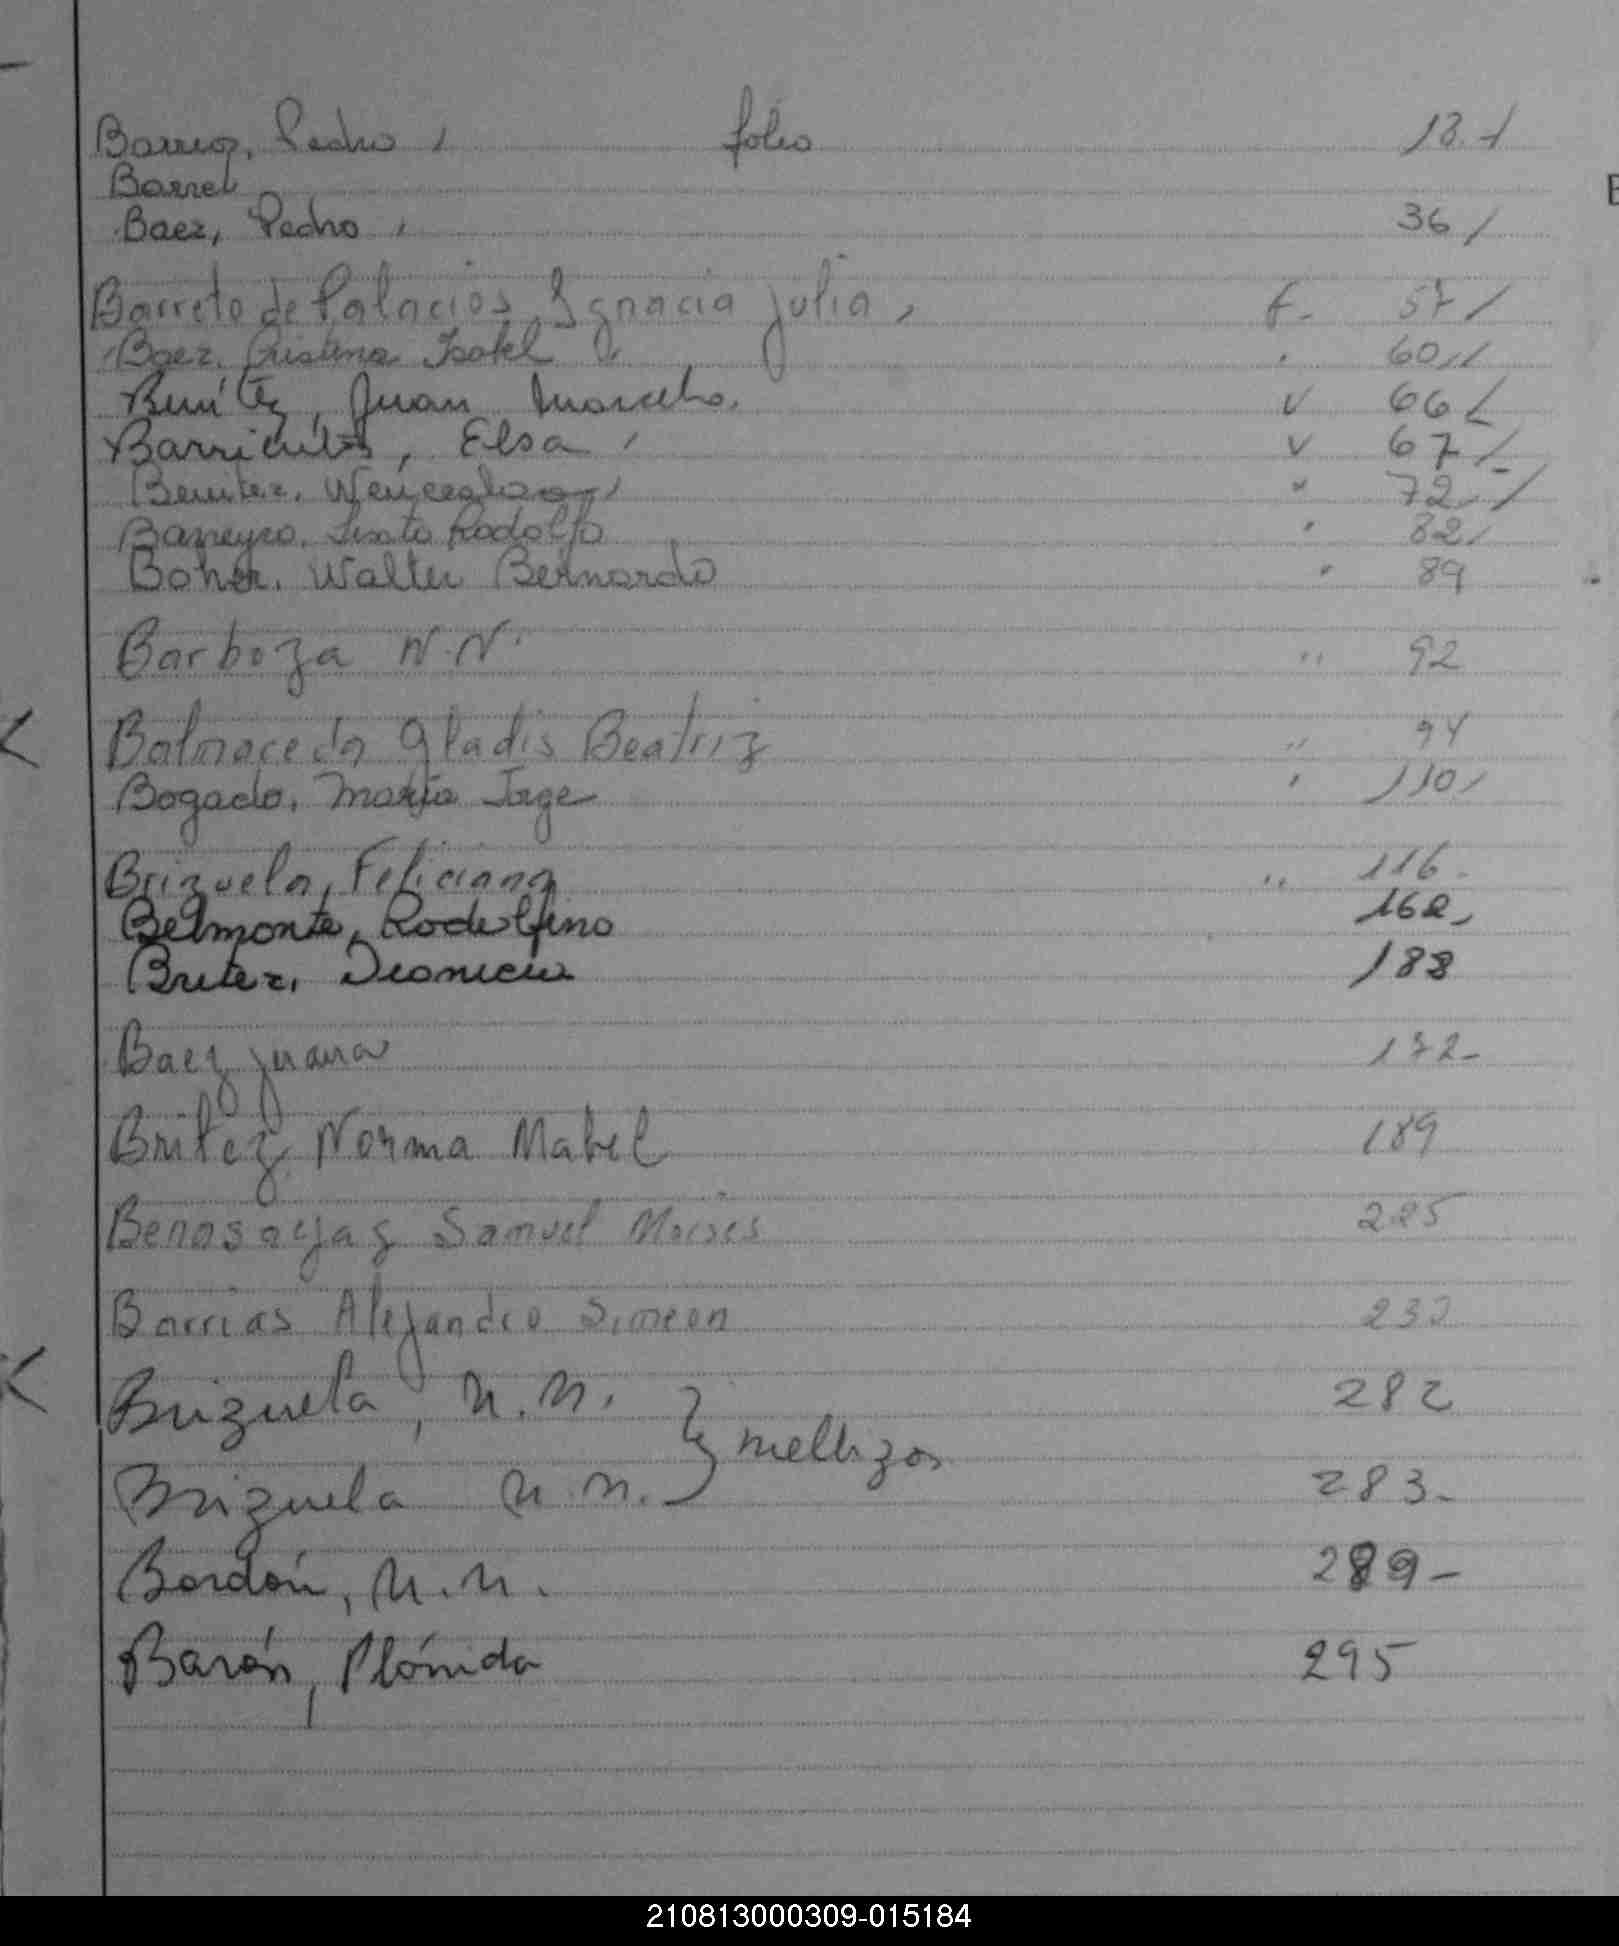 Barrios, Pedro, folio 13.-/
Barret
Baez, Pedro, 36/
Barreto de Palacios Ignacia Julia, f. 57/
Baez, Cristina Isabel, 60,//
Benítez, Juan Marcelo. v 66/
Barrientos, Elsa, v 67/-
Benitez, Wenceslao " 72./
Barreyro, Sixto Rodolfo " 82/
Boher, Walter Bernardo " 89
Barboza N.N. " 92
Balmaceda Gladis Beatriz " 94
Bogado, Maria Jorge " 110/
Brizuela, Feliciana " 116.
Belmonte, Rodolfino 162,
Britez, Dionicio 188
Baez Juana 172-
Britez Norma Mabel 189
Benasayag Samuel Moises 225
Barrias Alejandro Simeon 232
Brizuela, N.N. 282
mellizos
Brizuela N.N. 283-
Bordón, N.N. 289-
Barón, Plónida 295
210813000309-015184